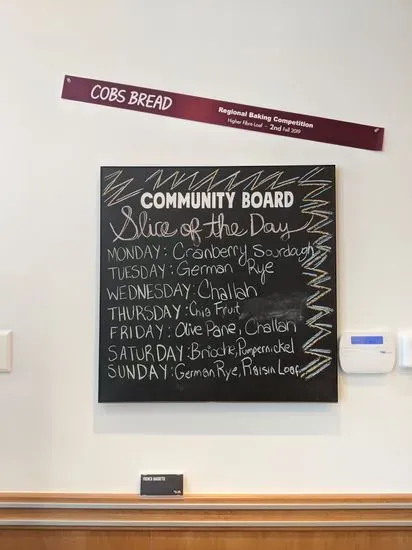 COBS BREAD
Regional Baking Competition
Higher Fibre Loaf - 2nd Fall 2019
COMMUNITY BOARD
Slice of the Day
MONDAY: Cranberry Sourdough
TUESDAY: German Rye
WEDNESDAY: Challah
THURSDAY: Chia Fruit
FRIDAY: Olive Pane, Challah
SATURDAY: Brioche, Pumpernickel
SUNDAY: German Rye, Raisin Loaf
FRENCH BAGUETTE